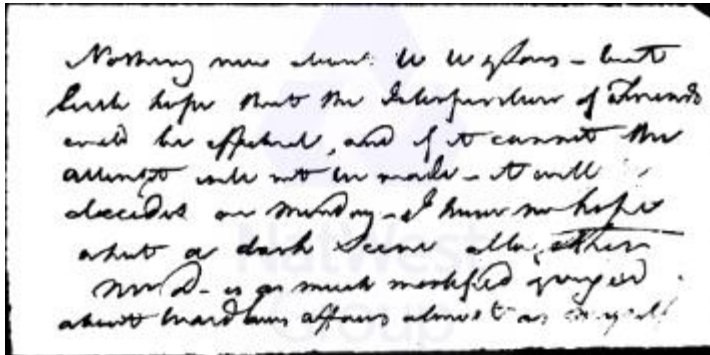 Nothing new about W W & Sons - but
little hope that the Interposition of Friends
could be effectual, and if it cannot the
attempt will not be made - it will
decided on Monday - I have no hope
what a dark scene altogether
Mr D - is as much mortified grieved
about Wardlaws affairs almost as myself
NatWest
Group